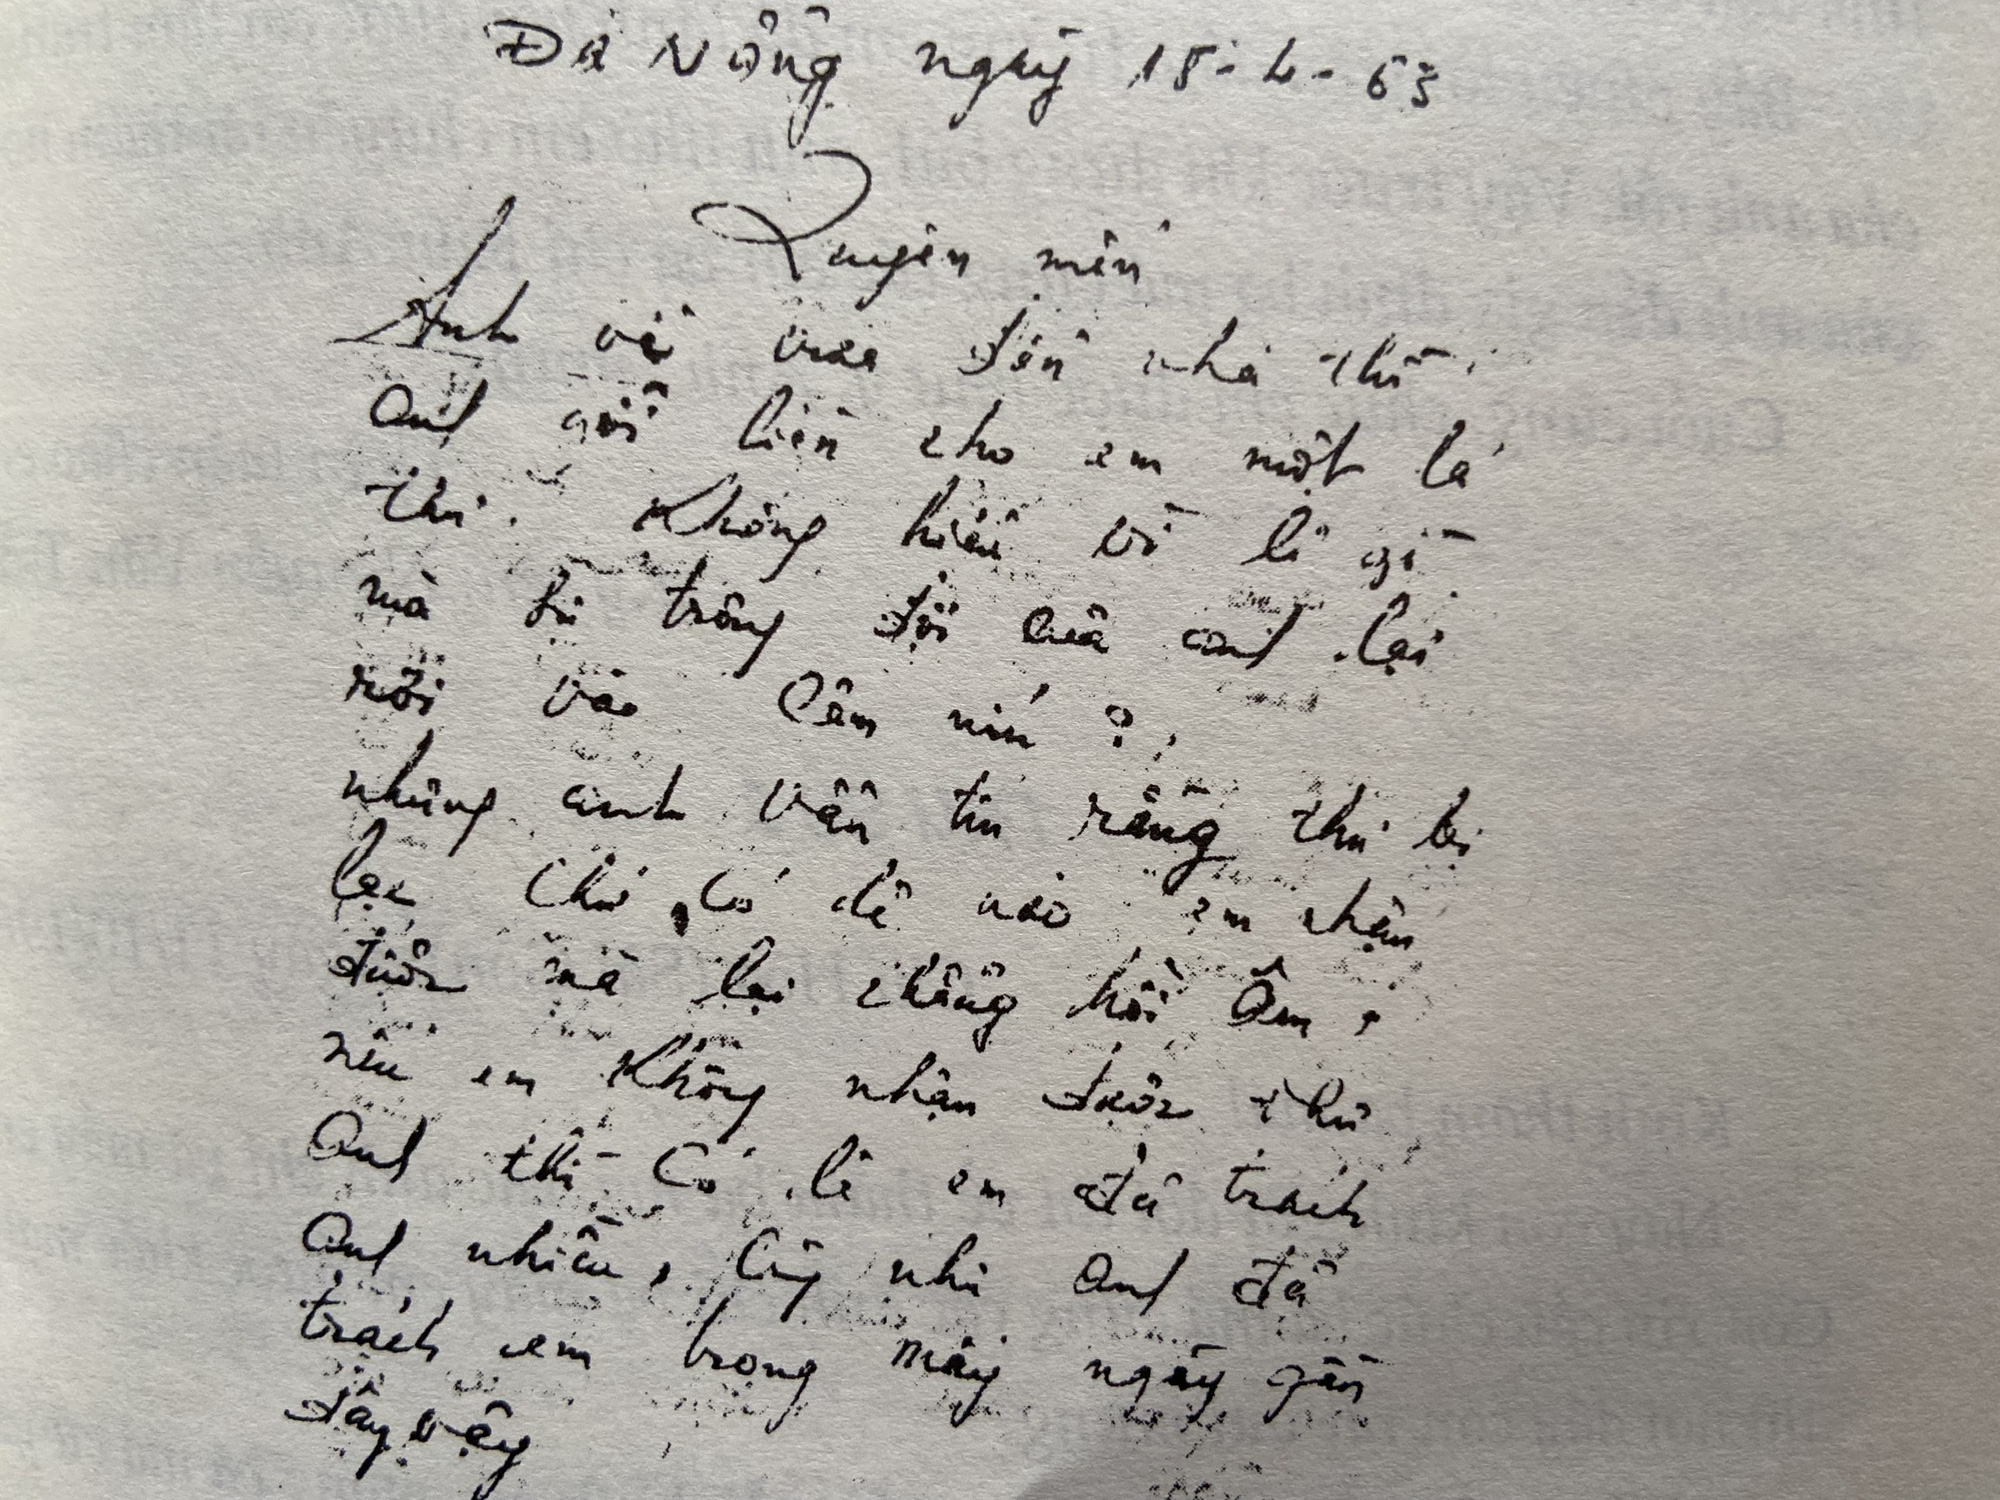 Đà Nẵng ngày 15-4-63
Quyên mến
Anh vội vừa đến nhà thì
anh gởi liền cho em một lá
thư. Không hiểu vì lí gì
mà sự trông đợi của anh lại
rơi vào câm nín ?
nhưng anh vẫn tin rằng thư bị
lạc chứ có lẽ nào em nhận
được mà lại chẳng hồi âm,
nếu em không nhận được thư
anh thì có lẽ em đã trách
anh nhiều, cũng như anh đã
trách em trong mấy ngày gần
đây vậy